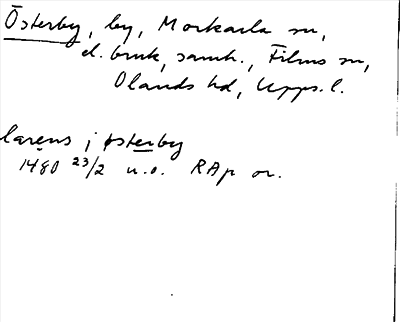 Österby, by, Morkarla sn,
el. bruk, samh., Films sn,
Olands hd, Upps. l.
larens j østerby
1480 23/2 u.o. RAp or.